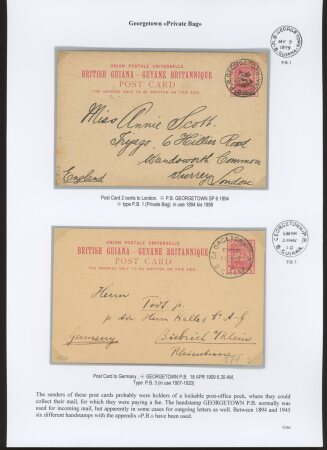 Georgetown «Private Bag»
P.B. GEORGETOWN
MY 9
1899
B. GUIANA
P.B. 1
UNION POSTALE UNIVERSELLE.
BRITISH GUIANA – GUYANE BRITANNIQUE
POST CARD
THE ADDRESS ONLY TO BE WRITTEN ON THIS SIDE.
Miss Annie Scott.
6 Hillier Road
Wandsworth Common
Surrey London
England
Post Card 2 cents to London. P.B. GEORGETOWN SP 6 1894
type P.B. 1 (Private Bag) in use 1894 to 1899
GEORGETOWN P.B.
6.30 AM
24 MAY
10
B. GUIANA
P.B. 3
UNION POSTALE UNIVERSELLE.
BRITISH GUIANA – GUYANE BRITANNIQUE
POST CARD
THE ADDRESS ONLY TO BE WRITTEN ON THIS SIDE.
Herrn
Germany
Post Card to Germany, GEORGETOWN P.B. 18 APR 1909 6.30 AM.
Type P.B. 3 (in use 1907-1920)
The senders of these post cards probably were holders of a lockable post-office pock, where they could
collect their mail, for which they were paying a fee. The handstamp GEORGETOWN P.B. normally was
used for incoming mail, but apparently in some cases for outgoing letters as well. Between 1894 and 1945
six different handstamps with the appendix «P.B.» have been used.